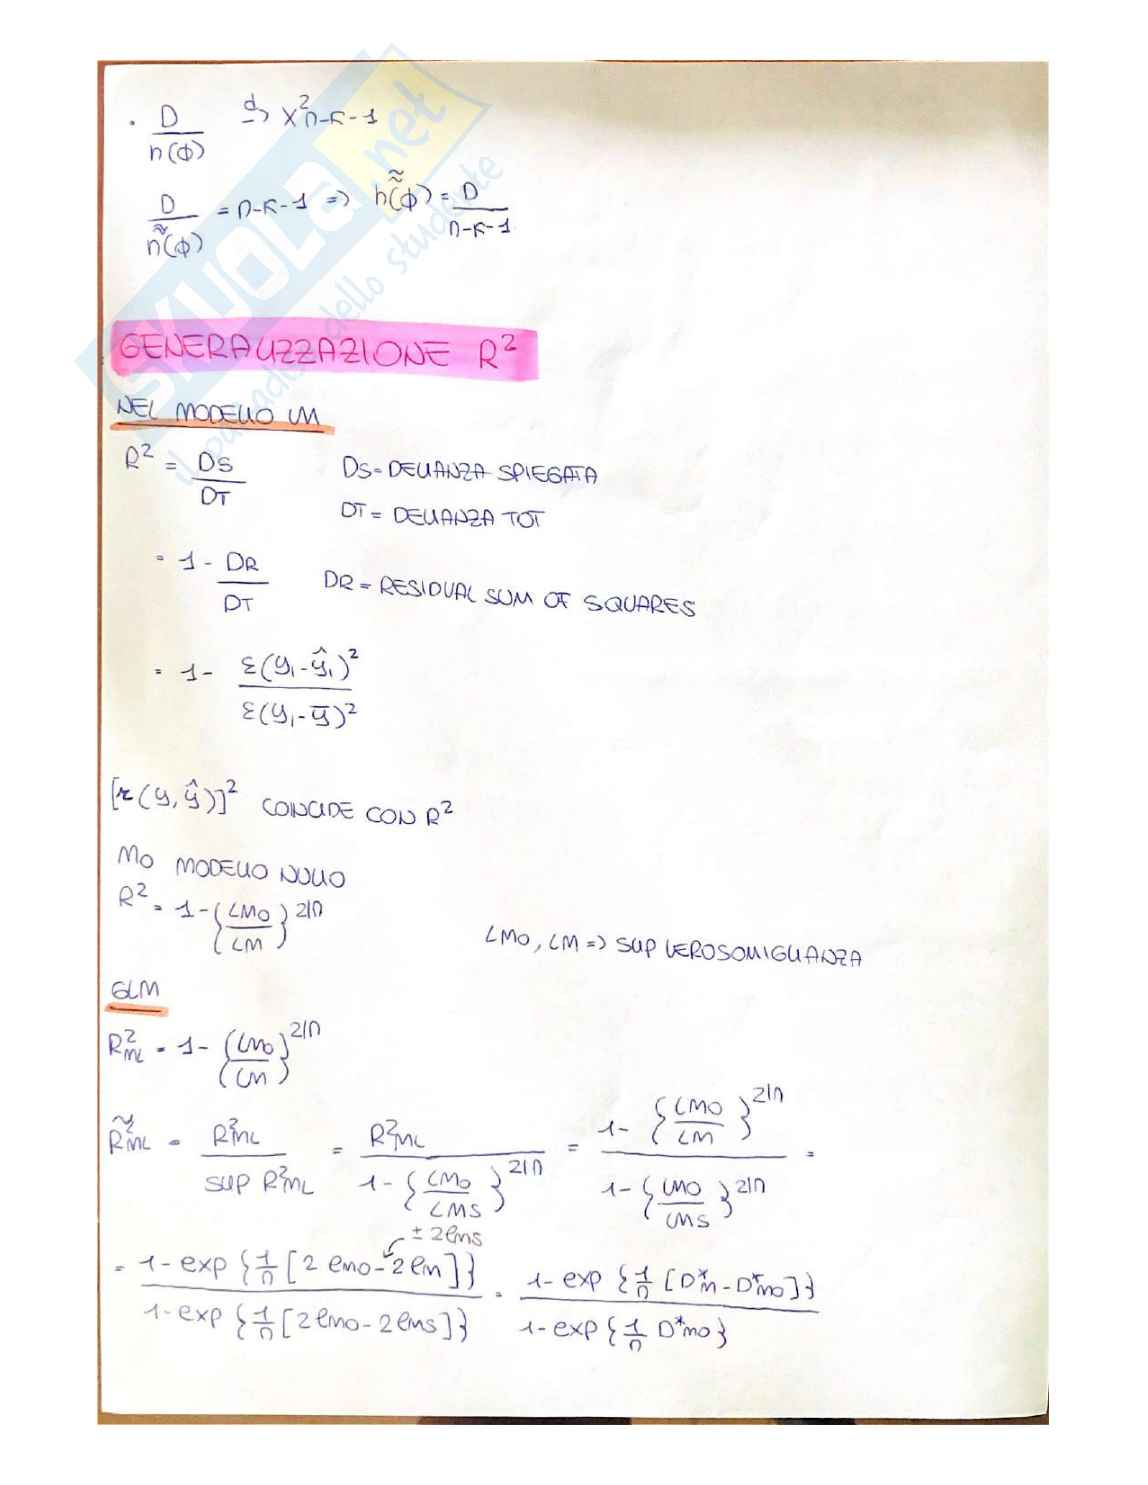 . D/h(φ) d→ χ²n-k-1
D/h̃̃(φ) = n-k-1 => h̃̃(φ) = D/n-k-1
SKUOLA.net
il paradiso dello studente
GENERALIZZAZIONE R²
NEL MODELLO LM
R² = DS/DT DS = DEVIANZA SPIEGATA
DT = DEVIANZA TOT
= 1 - DR/DT DR = RESIDUAL SUM OF SQUARES
= 1 - Σ(yi - ŷi)²/Σ(yi - ȳ)²
[r(y, ŷ)]² COINCIDE CON R²
M0 MODELLO NULLO
R² = 1 - {LM0/LM}^2/n
LM0, LM => SUP VEROSOMIGLIANZA
GLM
R²ML = 1 - {LM0/LM}^2/n
R̃²ML = R²ML/sup R²ML = R²ML/1 - {LM0/LMS}^2/n = 1 - {LM0/LM}^2/n/1 - {LM0/LMS}^2/n =
± 2lms
= 1 - exp{1/n [2 lm0 - 2lm]}/1 - exp{1/n [2lm0 - 2lms]} = 1 - exp{1/n [D*m - D*m0]}/1 - exp{1/n D*m0}